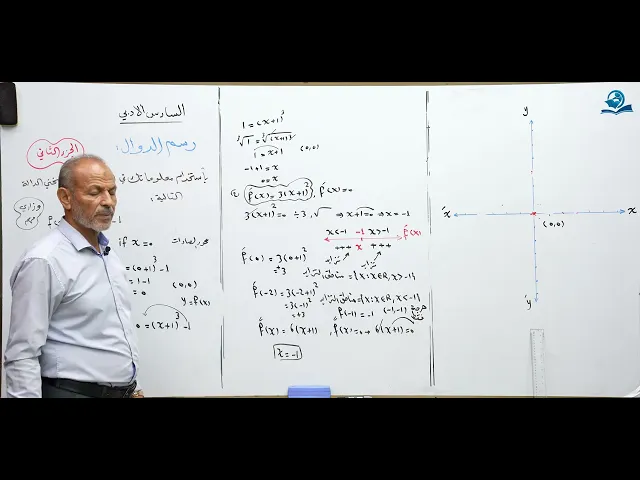 السادس الادبي
رسم الدوال:
الجزء الثاني
بأستخدام معلوماتك في
التالية:
وزاري
مهم
-1
if x=0
=(0+1)³-1
=1-1
=0
(0,0)
y=f(x)
0=(x+1)³-1
1=(x+1)³
∛1=∛(x+1)³
1=x+1 (0,0)
-1+1=x
0=x
f́(x)=3(x+1)², f́(x)=0
3(x+1)²=0 ÷3, √ ⇒ x+1=0 ⇒ x=-1
x<-1 -1 x>-1 f́(x)
+++ x +++
تزايد تزايد
f́(0)=3(0+1)²
=3
مناطق التزايد={x:x∈R,x>-1}
f́(-2)=3(-2+1)²
مناطق التزايد={x:x∈R,x<-1}
=3(-1)²
+3
f(-1)=-1 (-1,-1) حرجة
f̋(x)=6(x+1) , f̋(x)=0 → 6(x+1)=0
x=-1
y
x́ x
(0,0)
ý